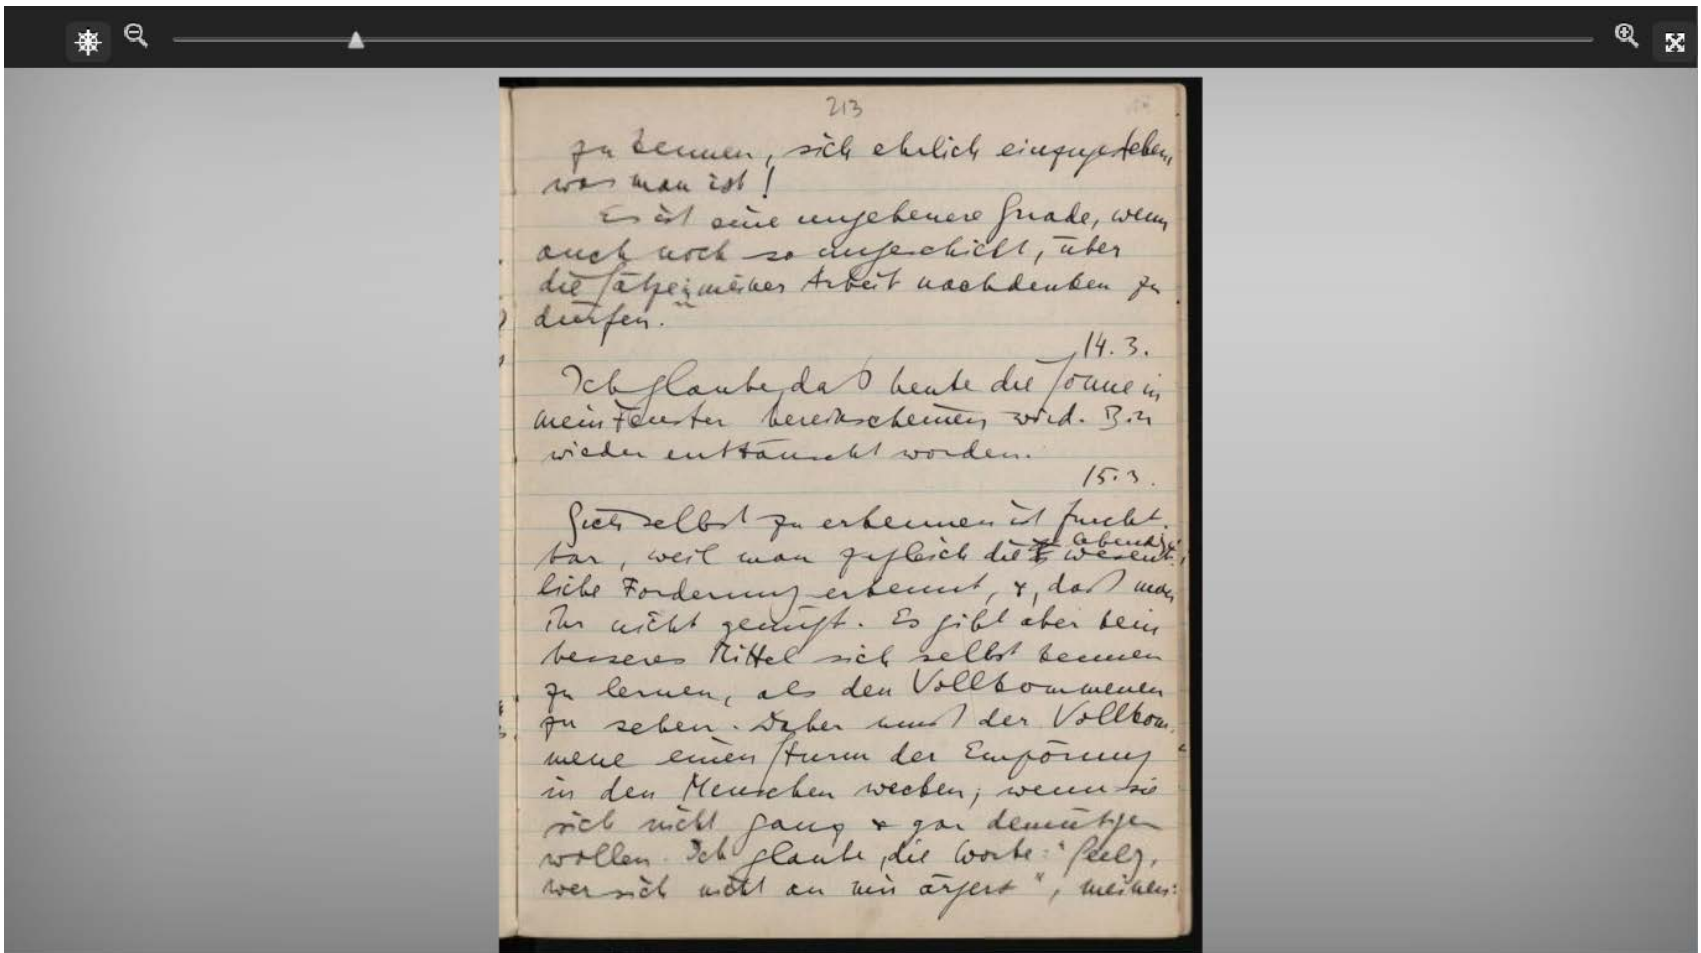 213
zu kennen, sich ehrlich einzugestehen,
was man ist!
Es ist eine ungeheuere Gnade, wenn
auch noch so ungeschickt, über
die Sätze in meiner Arbeit nachdenken zu
dürfen.
14. 3.
Ich glaube, daß heute die Sonne in
mein Fenster hereinscheinen wird. Bin
wieder enttäuscht worden.
15. 3.
Sich selbst zu erkennen ist furcht-
bar, weil man zugleich die lebendige
wesent-
liche Forderung erkennt, &, daß man
ihr nicht genügt. Es gibt aber kein
besseres Mittel sich selbst kennen
zu lernen, als den Vollkommenen
zu sehen. Daher muß der Vollkom-
mene einen Sturm der Empörung
in den Menschen wecken; wenn sie
sich nicht ganz & gar demütigen
wollen. Ich glaube, die Worte: "Selig,
wer sich nicht an mir ärgert", meinen: